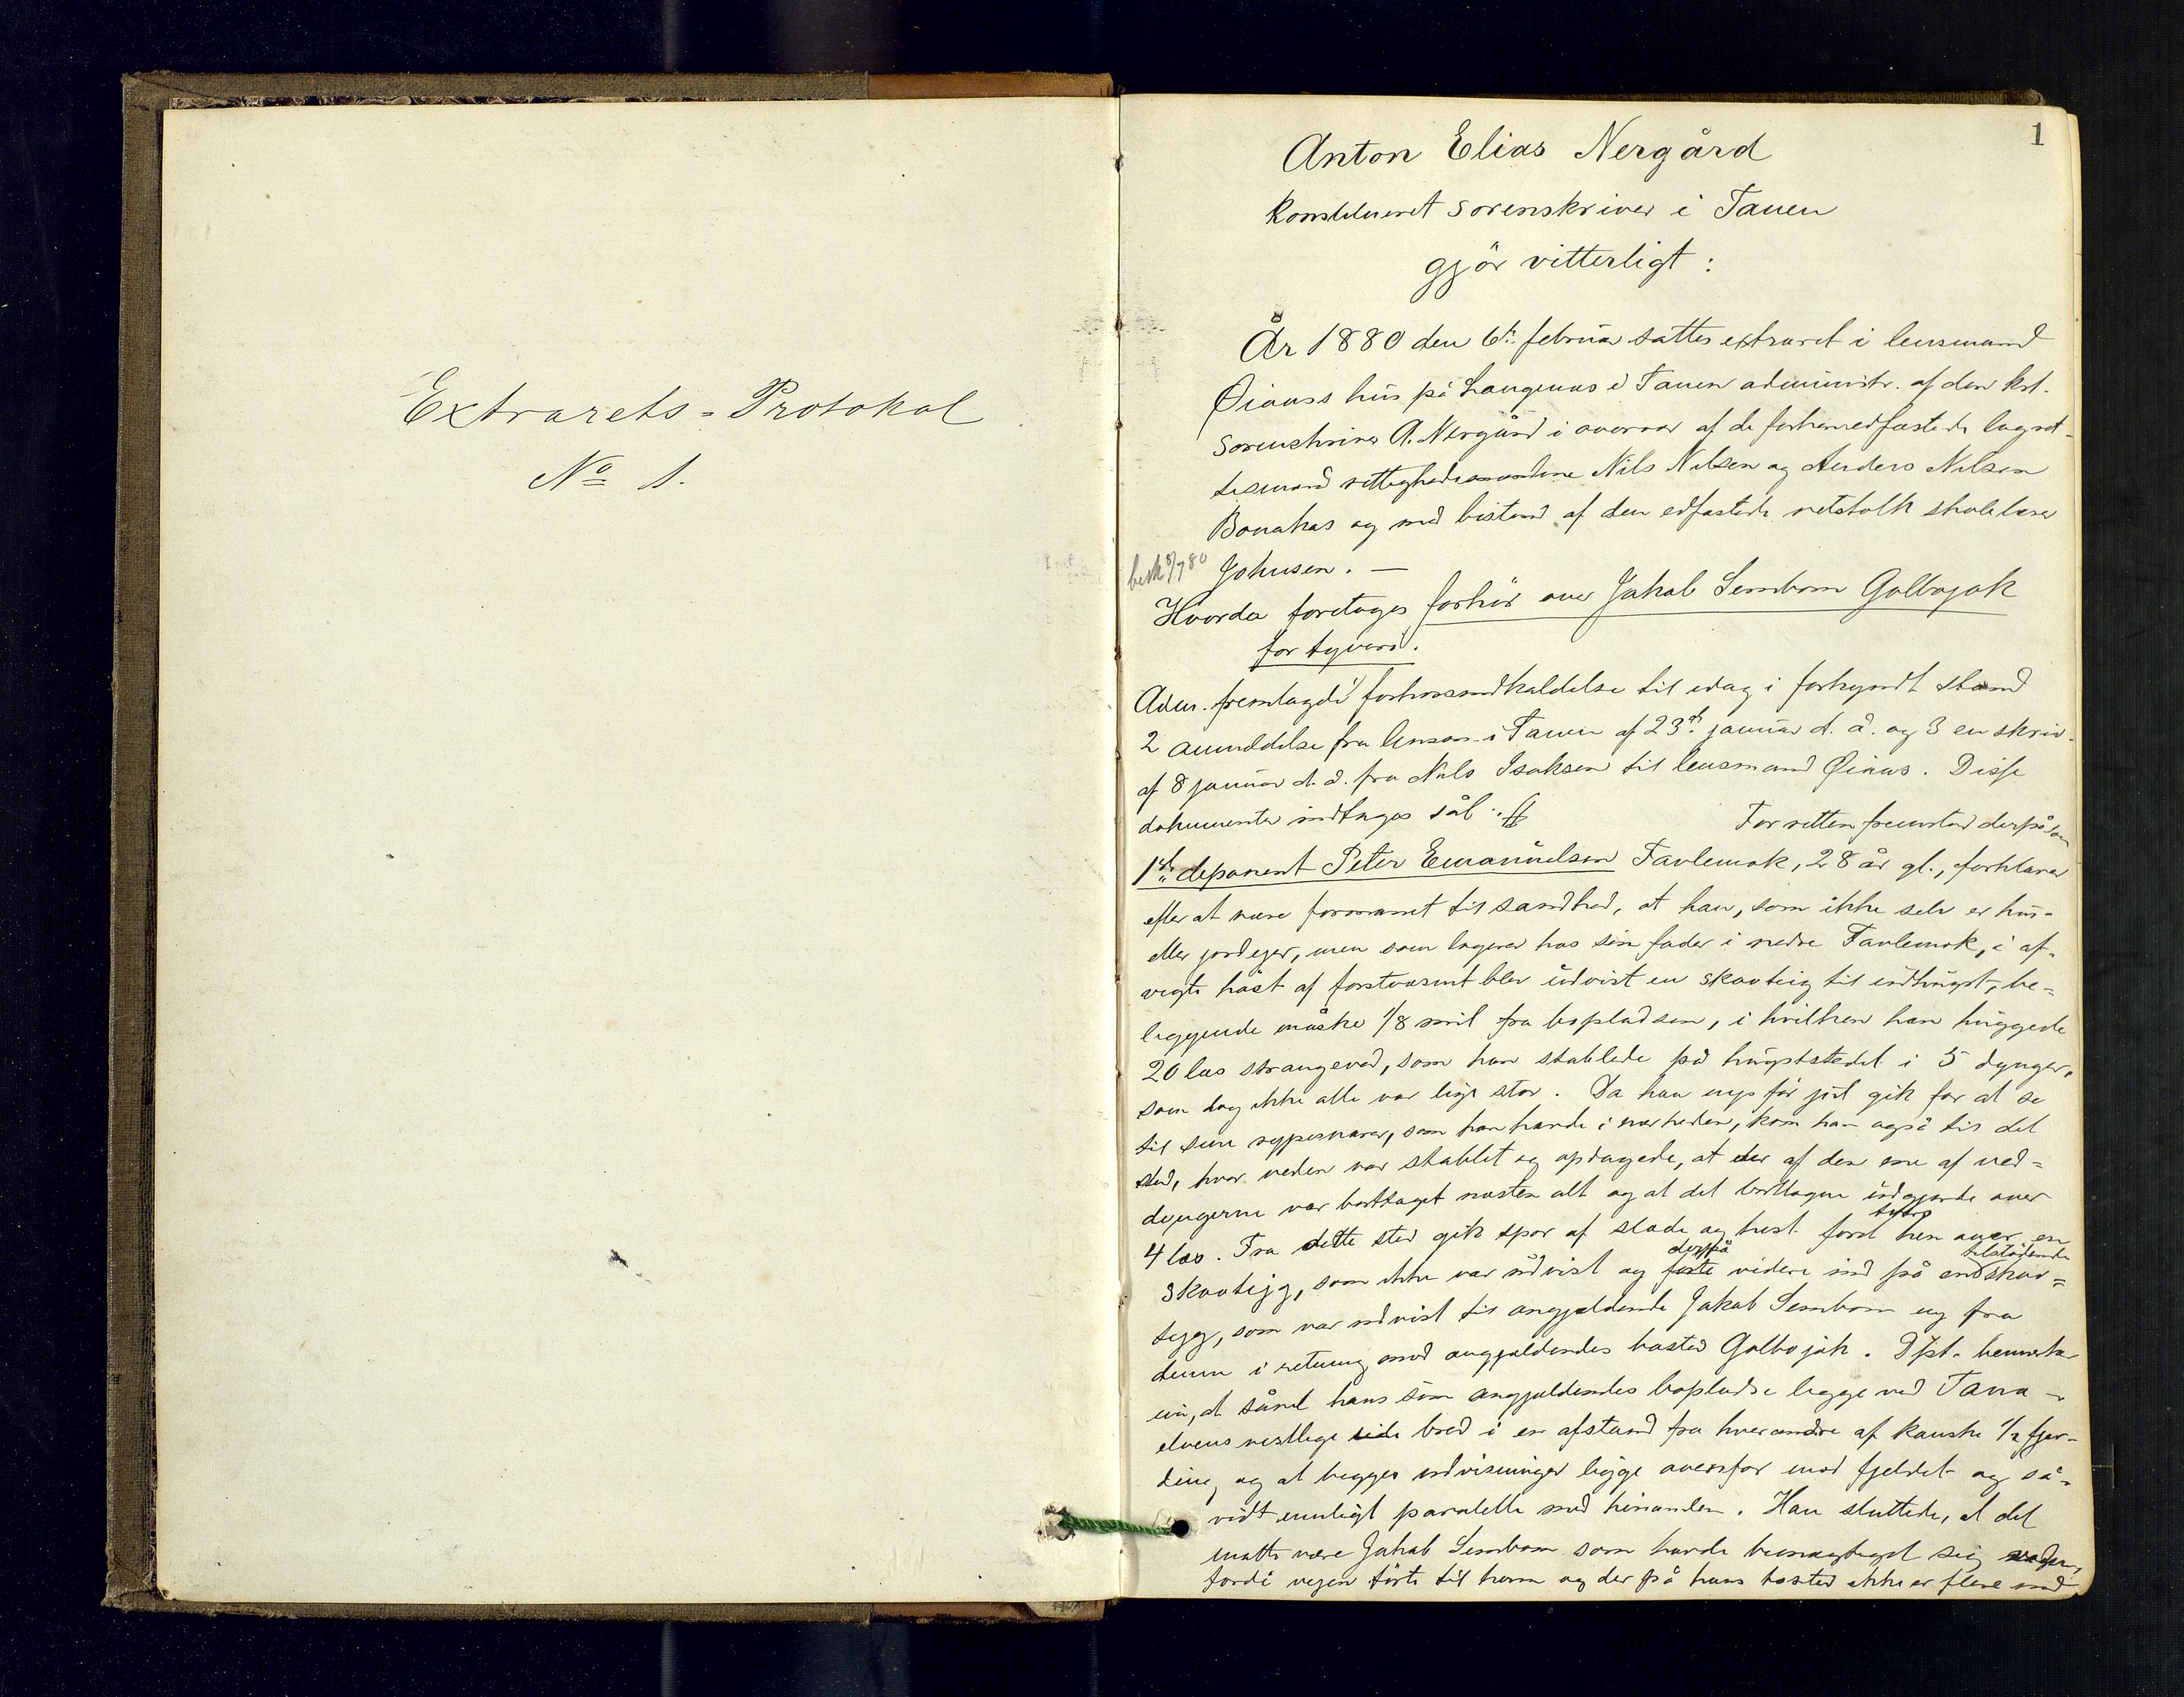 Extrarets-Protokol
No 1.
1
Anton Elias Nergård
konstitueret sorenskriver i Tanen
gjör vitterligt:
År 1880 den 6te februar sattes extraret i lensmand
Qiauss hus på Langenæs i Tanen administr. af den kst.
sorenskriver A. Nergård i overvær af de forhen edfæstede lagret-
tesmænd rettighedsmændene Nils Nilsen og Anders Nilsen
Bonakas og med bistand af den edfæstede retstolk skolelærer
Johnsen. —
besk 8/7 80
Hvorda foretoges forhör over Jakob Sembom Golbojok
for tyveri.
Adm. fremlagde 1 forhörsindkaldelse til idag i forkyndt stand
2 anmeldelse fra lensm. i Tanen af 23de januar d. å. og 3 en skriv.
af 8 januar d. å. fra Nils Isaksen til lensmand Qiaus. Disse
dokumenter indtages sål.
For retten fremstod derpå som
1ste deponent Peter Emanuelsen Favlemok, 28 år gl., forklarer
efter at være formanet til sandhed, at han, som ikke selv er hus-
eller jordejer, men som logerer hos sin fader i nedre Favlemok, i af-
vigte höst af forstvæsnet blev udvist en skovteig til udhugst, be-
liggende måske 1/8 mil fra bopladsen, i hvilken han huggede
20 læs strangeved, som han stablede på hugststedet i 5 dynger,
som dog ikke alle var lige stor. Da han nys för jul gik for at se
til sine rypesnarer, som han havde i nærheden, kom han også til det
sted, hvor veden var stablet og opdagede, at der af den ene af ved-
dyngerne var borttaget næsten alt og at det borttagne udgjorde over
4 læs. Fra dette sted gik spor af slæde og hest först hen over en
skovteig, som ikke var udvist og derpå videre ind på en tilstödende skov-
teig, som var udvist til angjældende Jakob Sembom og fra
denne i retning mod angjældendes bosted Golbojok. Dpt. bemærker
en, at såvel hans som angjældendes boplads ligge ved Tana-
elvens vestlige bred i en afstand fra hverandre af kanske 1/2 fjer-
ding, og at begges udvisninger ligge ovenfor mod fjeldet og så-
vidt muligt paralelle med hinanden. Han sluttede, at det
måtte være Jakob Sembom som havde bemægtiget sig veden,
fordi vejen förte til ham og der på hans bosted ikke er flere end